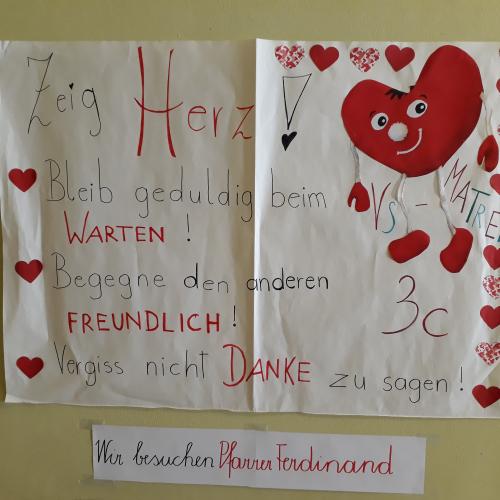 Zeig Herz!
Bleib geduldig beim
WARTEN!
VS - MATREI
Begegne den anderen
FREUNDLICH!
3c
Vergiss nicht DANKE zu sagen!
Wir besuchen Pfarrer Ferdinand